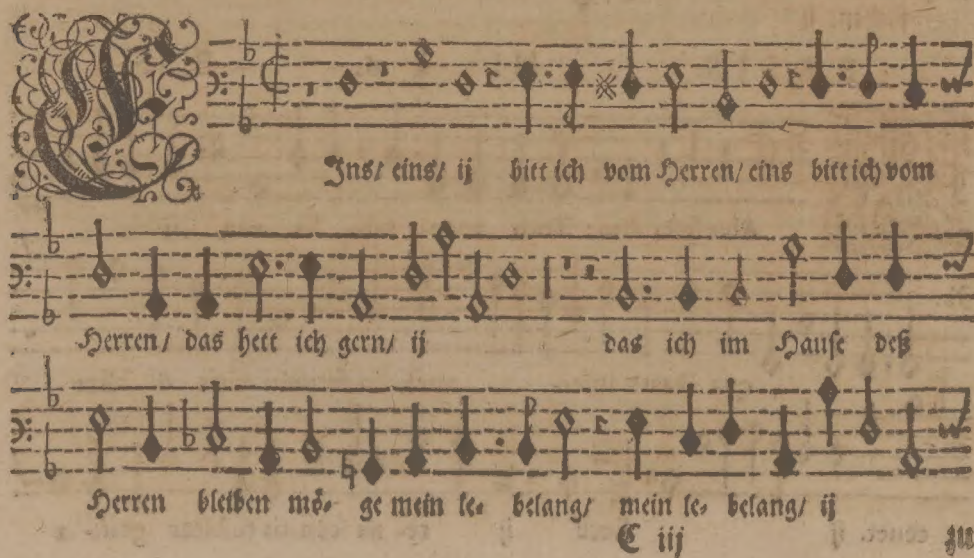 EIns/ eins/ ij bitt ich vom Herren/ eins bitt ich vom
Herren/ das hett ich gern/ ij das ich im Hause deß
Herren bleiben mö⸗ ge mein le⸗ belang/ mein le⸗ belang/ ij
C iij zu